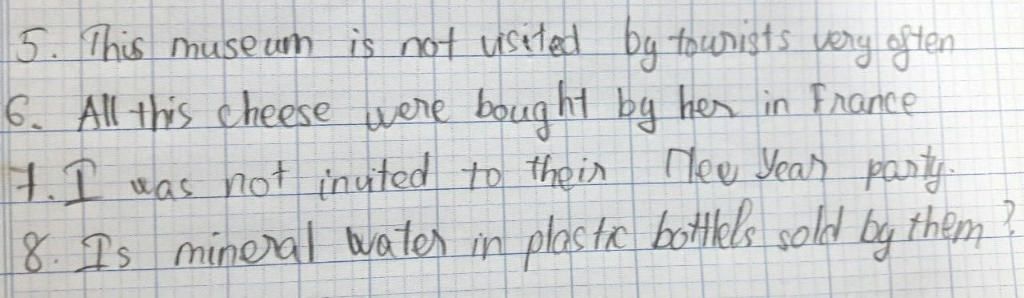 5. This museum is not visited by tourists very often
6. All this cheese were bought by her in France
7. I was not invited to their New Year party.
8. Is mineral water in plastic bottlels sold by them?